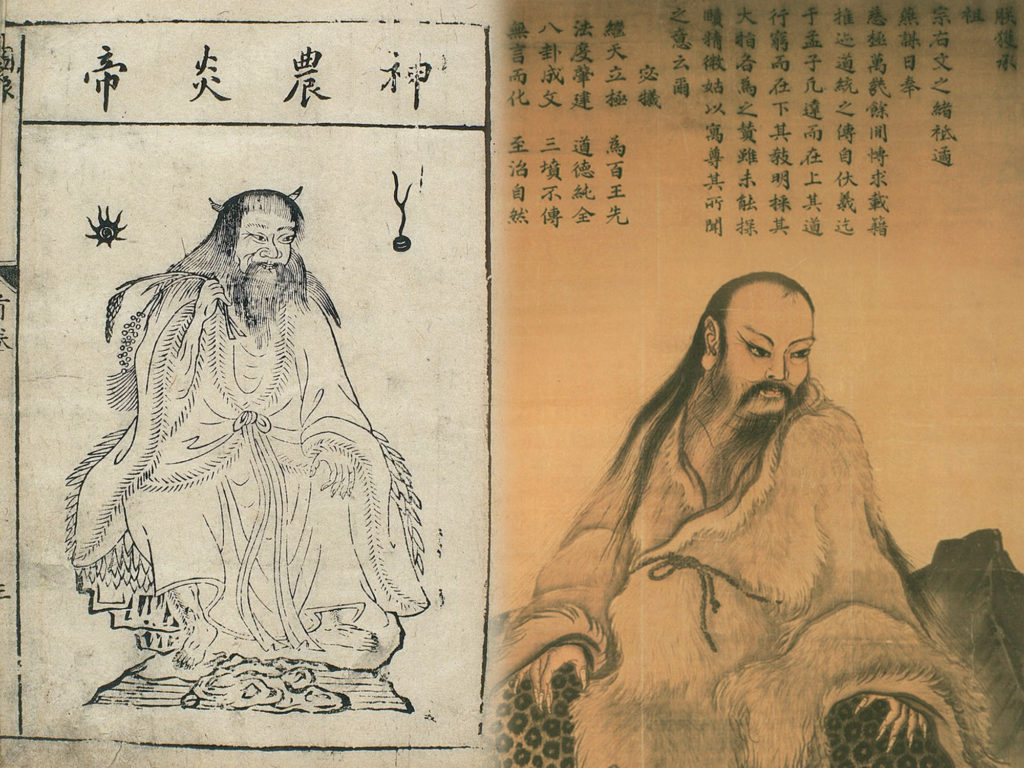 神農炎帝
朕獲承
祖
宗右文之緒祗遹
燕謀日奉
慈極萬幾餘閒博求載籍
推迹道統之傳自伏羲迄
于孟子凡達而在上其道
行窮而在下其教明採其
大指各為之贊雖未能探
賾精微姑以寓尊其所聞
之意云爾
宓犧
繼天立極 為百王先
法度肇建 道德純全
八卦成文 三墳不傳
無言而化 至治自然